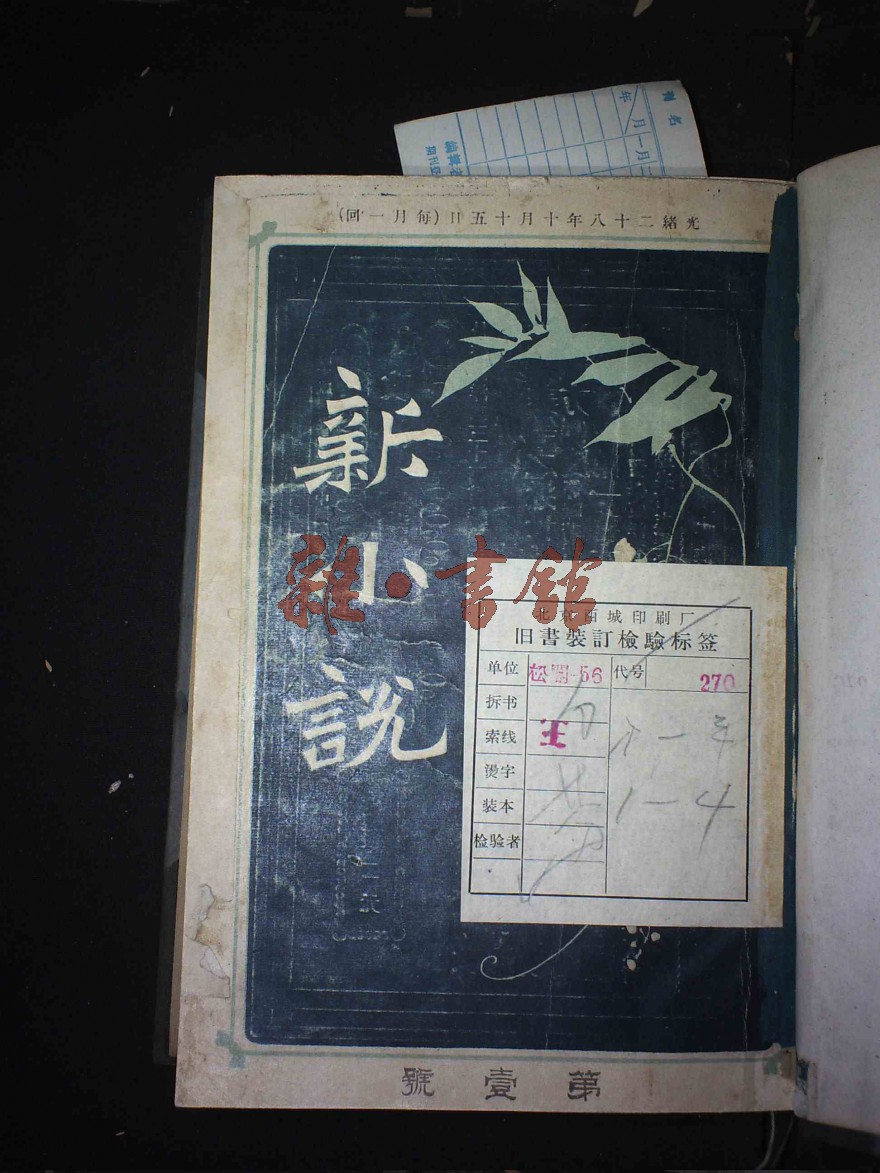 刊名
年 月 一月
光緒二十八年十月十五日(每月一回)
新小說
雜·書館
北京西城印刷厂
旧書裝訂檢驗标签
单位 松 56 代号 270
拆书
索线 王
烫字
装本
检验者
1-4
第壹號